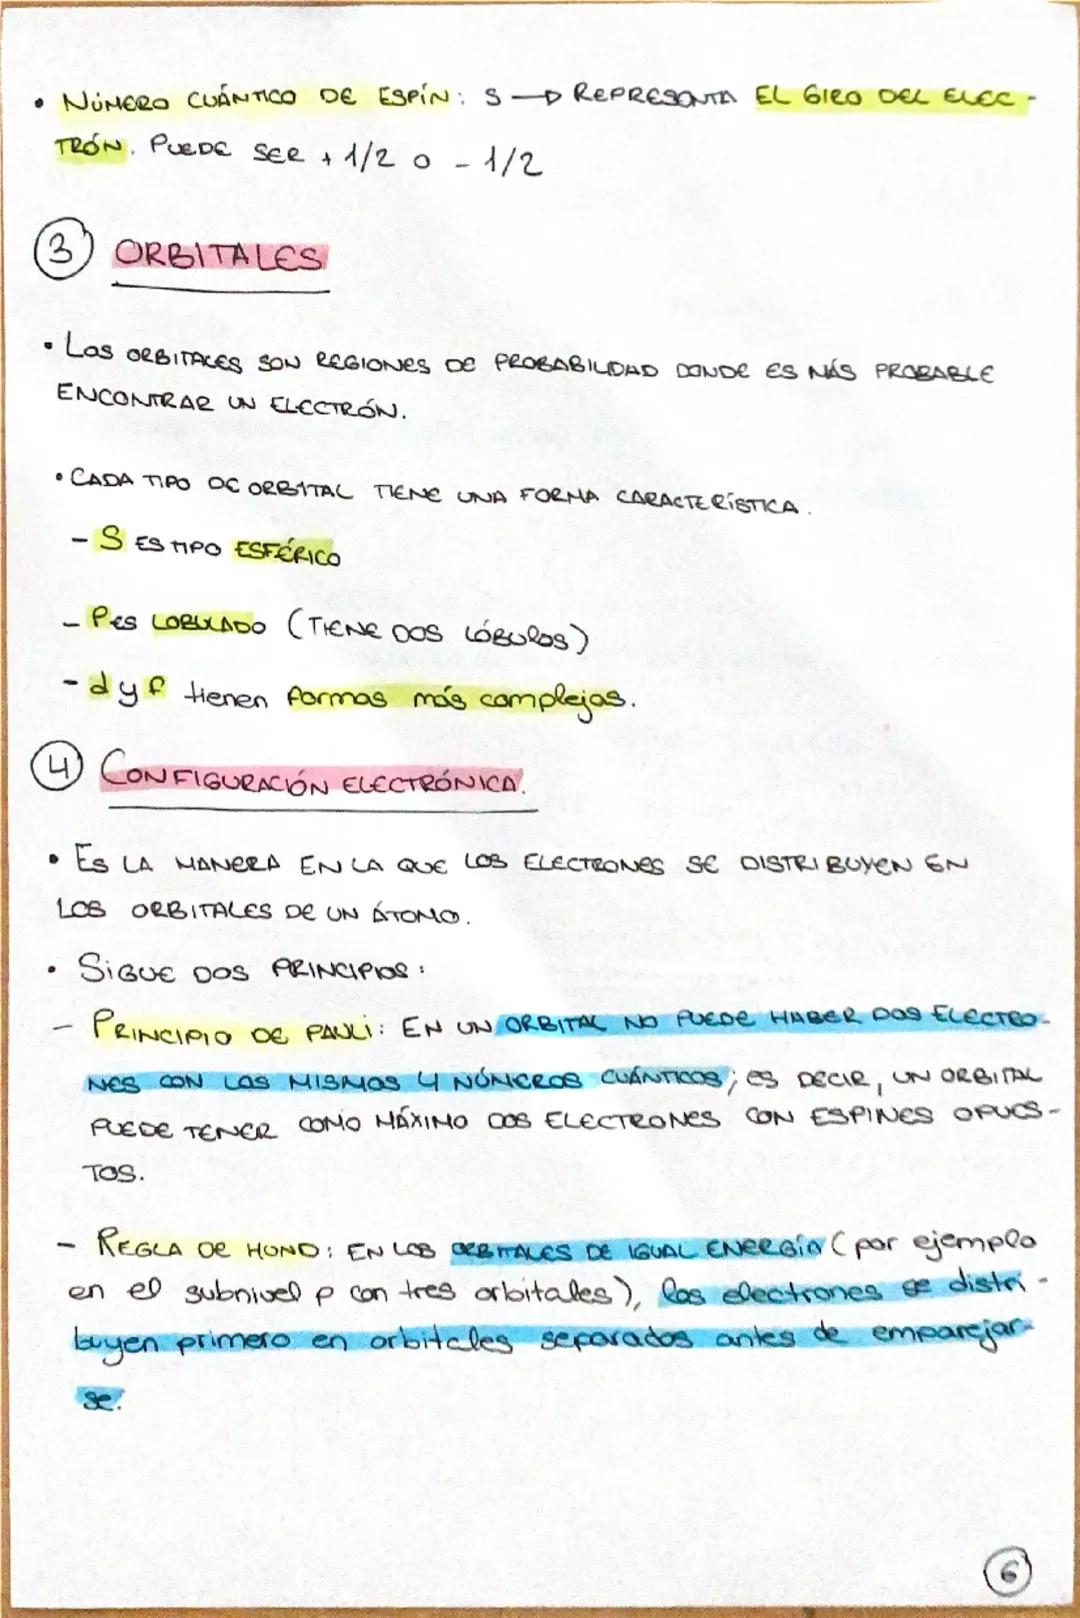 • NÚMERO CUÁNTICO DE ESPÍN: S → REPRESENTA EL GIRO DEL ELEC-
TRÓN. PUEDE SER + 1/2 O - 1/2
3 ORBITALES
• LOS ORBITALES SON REGIONES DE PROBABILIDAD DONDE ES MÁS PROBABLE
ENCONTRAR UN ELECTRÓN.
• CADA TIPO DE ORBITAL TIENE UNA FORMA CARACTERÍSTICA.
- S ES TIPO ESFÉRICO
- P es LOBULADO (TIENE DOS LÓBULOS)
- d y f tienen formas más complejas.
4 CONFIGURACIÓN ELECTRÓNICA.
• ES LA MANERA EN LA QUE LOS ELECTRONES SE DISTRIBUYEN EN
LOS ORBITALES DE UN ÁTOMO.
• SIGUE DOS PRINCIPIOS:
- PRINCIPIO DE PAULI: EN UN ORBITAL NO PUEDE HABER DOS ELECTRO-
NES CON LOS MISMOS 4 NÚMEROS CUÁNTICOS; ES DECIR, UN ORBITAL
PUEDE TENER COMO MÁXIMO DOS ELECTRONES CON ESPINES OPUES-
TOS.
- REGLA DE HUND: EN LOS ORBITALES DE IGUAL ENERGÍA (por ejemplo
en el subnivel p con tres orbitales), los electrones se distri-
buyen primero en orbitales separados antes de emparejar-
se.
6